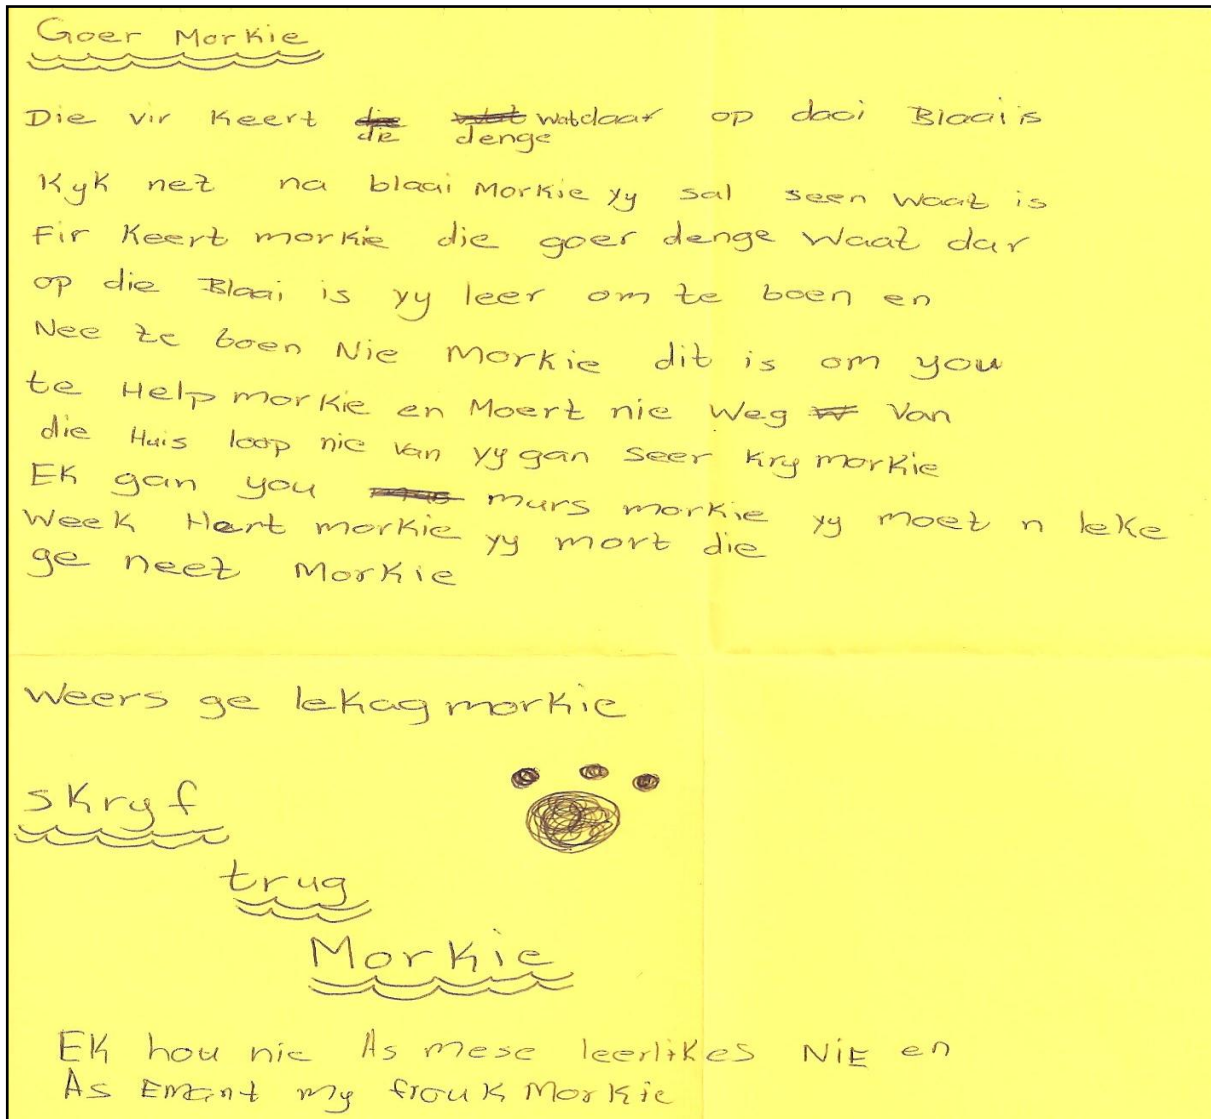 Goer Morkie
Die vir Keert die denge watdaar op daai Blaai is
Kyk net na blaai Morkie yy sal seen waat is
Fir Keert morkie die goer denge Waat dar
op die Blaai is yy leer om te boen en
Nee te boen Nie Morkie dit is om you
te Help morkie en Moert nie Weg Van
die Huis loop nie van yy gan seer kry morkie
EK gan you murs morkie yy moet n leke
Week Hart morkie yy mort die
ge neet Morkie
Weers ge lekag morkie
skryf
trug
Morkie
EK hou nie As mese leerlikes NiE en
As Emant my frouk Morkie